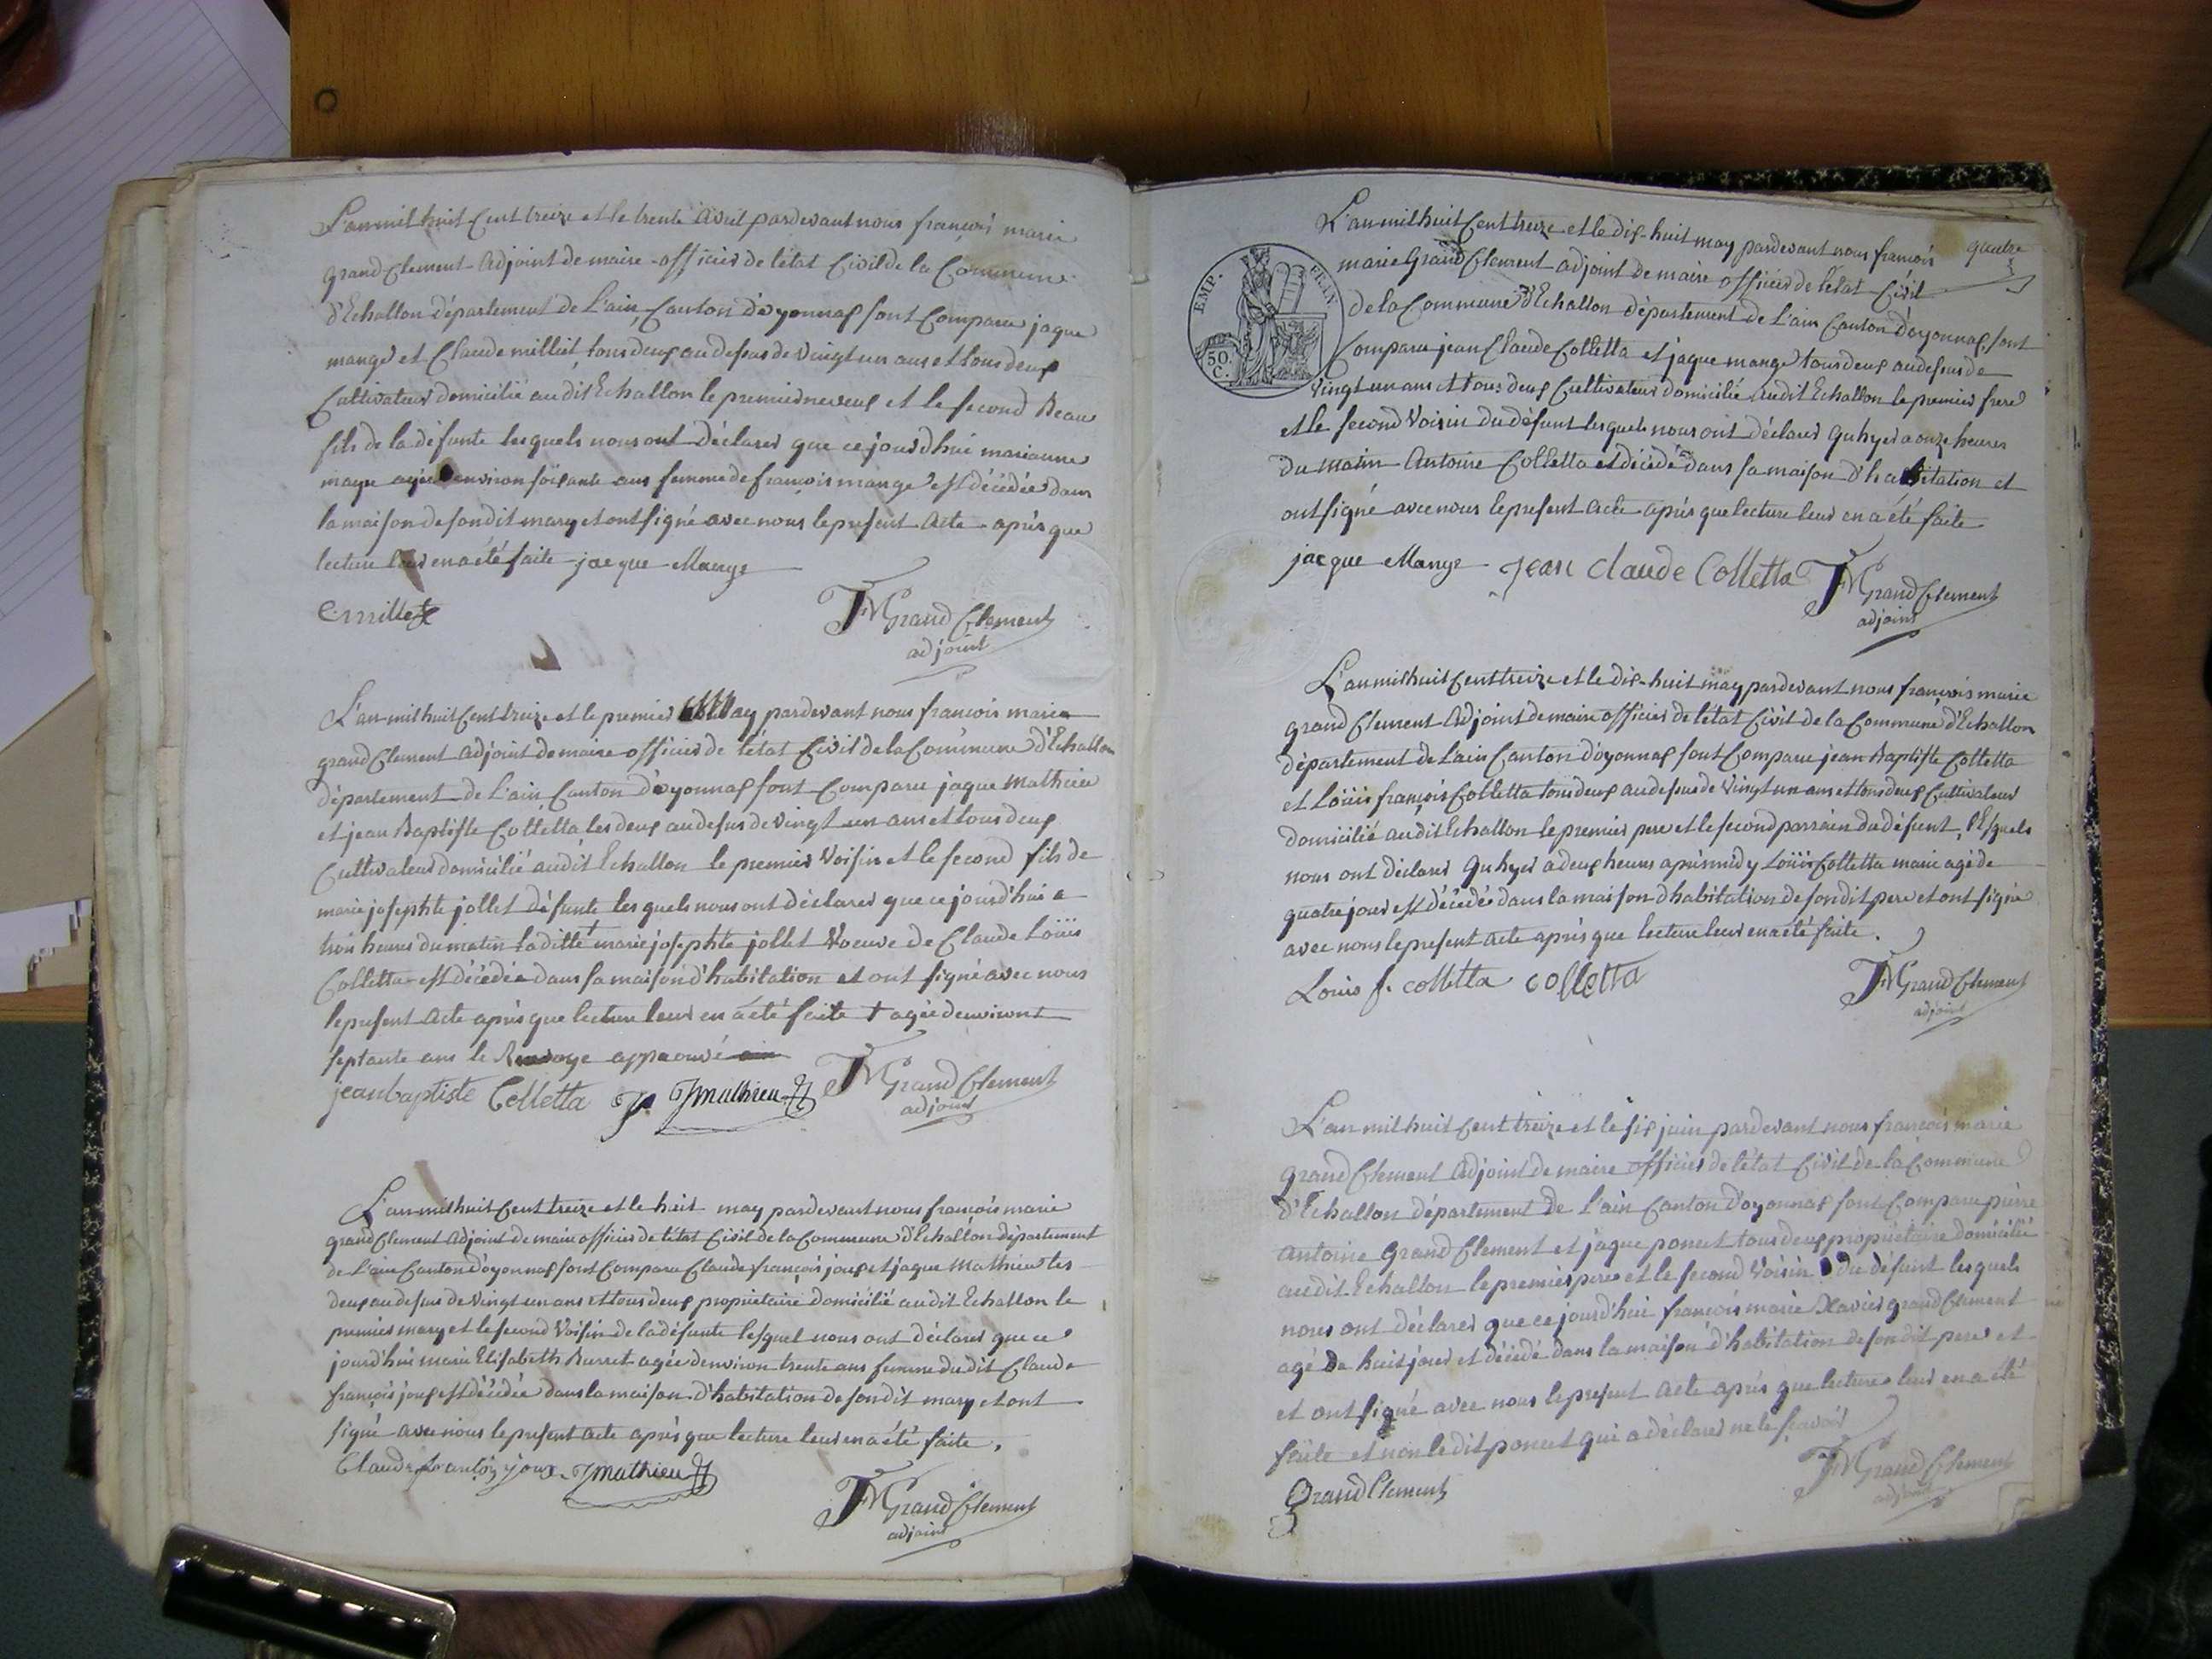 L'an mil huit Cent treize et le trente avril pardevant nous françois marie
grand Clement adjoint de maire officier de l'état Civil de la Commune
d'Echallon département de L'ain Canton d'oyonnax sont Comparu jaque
mange et Claude milliet tous deux au desus de vingt un ans et tous deux
Cultivateur domicilié au dit Echallon le premier neveux et le second Beau
fils de la défunte lesquels nous ont déclarer que ce jourd'hui marianne
agée environ soisante ans femme de françois mange est décédée dans
la maison de son dit mary et ont signé avec nous le present acte après que
lecture leur en a été faite jacque Mange
C. millet
FM Grand Clement
adjoint
L'an mil huit Cent treize et le premier May pardevant nous françois marie
grand Clement adjoint de maire officier de l'état Civil de la Commune d'Echallon
département de L'ain Canton d'oyonnax sont Comparu jaque Mathieu
et jean Baptiste Colletta les deux au desus de vingt un ans et tous deux
Cultivateur domicilié au dit Echallon le premier Voisin et le second fils de
marie josephte jollet défunte les quels nous ont déclarer que ce jourd'hui a
trois heures du matin la ditte + marie josephte jollet Voeuve de Claude Loüis
Colletta est décédée dans sa maison d'habitation et ont signé avec nous
le present acte après que lecture leur en a été faite + agée denviront
septante ans le Renvoye approuvé
jean baptiste Colletta J. Jmathieu
FM Grand Clement
adjoint
L'an mil huit Cent treize et le huit may pardevant nous françois marie
grand Clement adjoint de maire officier de l'état Civil de la Commune d'Echallon département
de L'ain Canton d'oyonnax sont Comparu Claude françois joux et jaque Mathieu les
deux au desus de vingt un ans et tous deux propriétaire domicilié au dit Echallon le
premier mary et le second Voisin de la défunte lesquel nous ont déclarer que ce
jourd'hui marie Elisabeth Burret agée denviron trente ans femme du dit Claude
françois joux est décédée dans la maison d'habitation de son dit mary et ont
signé avec nous le present acte après que lecture leur en a été faite.
Claude françois joux Jmathieu
FM Grand Clement
adjoint
quatre
L'an mil huit Cent treize et le dix-huit may pardevant nous françois
marie Grand Clement adjoint de maire officier de l'état Civil
de la Commune d'Echallon département de L'ain Canton d'oyonnax sont
Comparu jean Claude Colletta et jaque mange tous deux au desus de
vingt un ans et tous deux Cultivateur domicilié audit Echallon le premier frere
et le second Voisin du défunt lesquels nous ont déclarer quhyer a onze heures
du matin Antoine Colletta est décédé dans sa maison d'habitation et
ont signé avec nous le present acte après que lecture leur en a été faite
EMP. FRAN
50. C.
jacque Mange Jean Claude Colletta FM Grand Clement
adjoint
L'an mil huit Cent treize et le dix-huit may pardevant nous françois marie
grand Clement adjoint de maire officier de l'état Civil de la Commune d'Echallon
département de L'ain Canton d'oyonnax sont Comparu jean Baptiste Colletta
et Loüis françois Colletta tous deux au desus de vingt un ans et tous deux Cultivateur
domicilié au dit Echallon le premier pere et le second parrain du défunt, lesquels
nous ont déclarer quhyer a deux heures après midy Loüis Colletta marie agé de
quatre jour est décédée dans la maison d'habitation de son dit pere et ont signé
avec nous le present acte après que lecture leur en a été faite.
Louis f. colletta colletta
FM Grand Clement
adjoint
L'an mil huit Cent treize et le six juin pardevant nous françois marie
grand Clement adjoint de maire officier de l'état Civil de la Commune
d'Echallon département de L'ain Canton d'oyonnax sont Comparu pierre
antoine Grand Clement et jaque poncet tous deux propriétaire domicilié
audit Echallon le premier pere et le second Voisin du défunt lesquels
nous ont déclarer que ce jourd'hui françois marie Xavier grand Clement
agé De huit jour et décédé dans la maison d'habitation de son dit pere et
et ont signé avec nous le present acte après que lecture leur en a été
faite et non le dit poncet qui a déclarer ne le sçavoir
Grand Clement
FM Grand Clement
adjoint